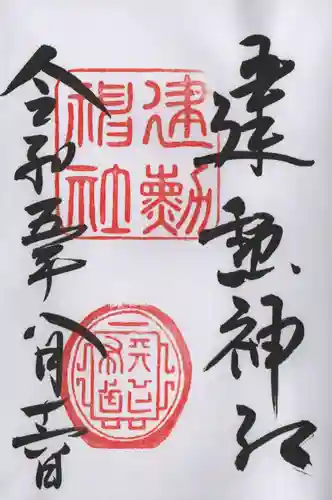 建勲神社
建勲
神社
令和五年八月十六日